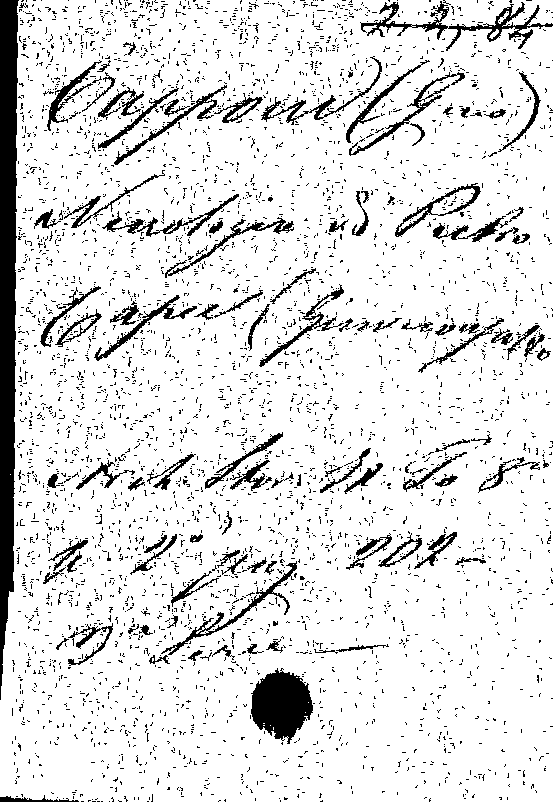 2, 2, 84
Capponi (Gino)
Necrologia di Pietro
Capei (Giureconsulto
Arch. Stor. It. To 8º
p. 2ª pag. 202 -
3ª Serie